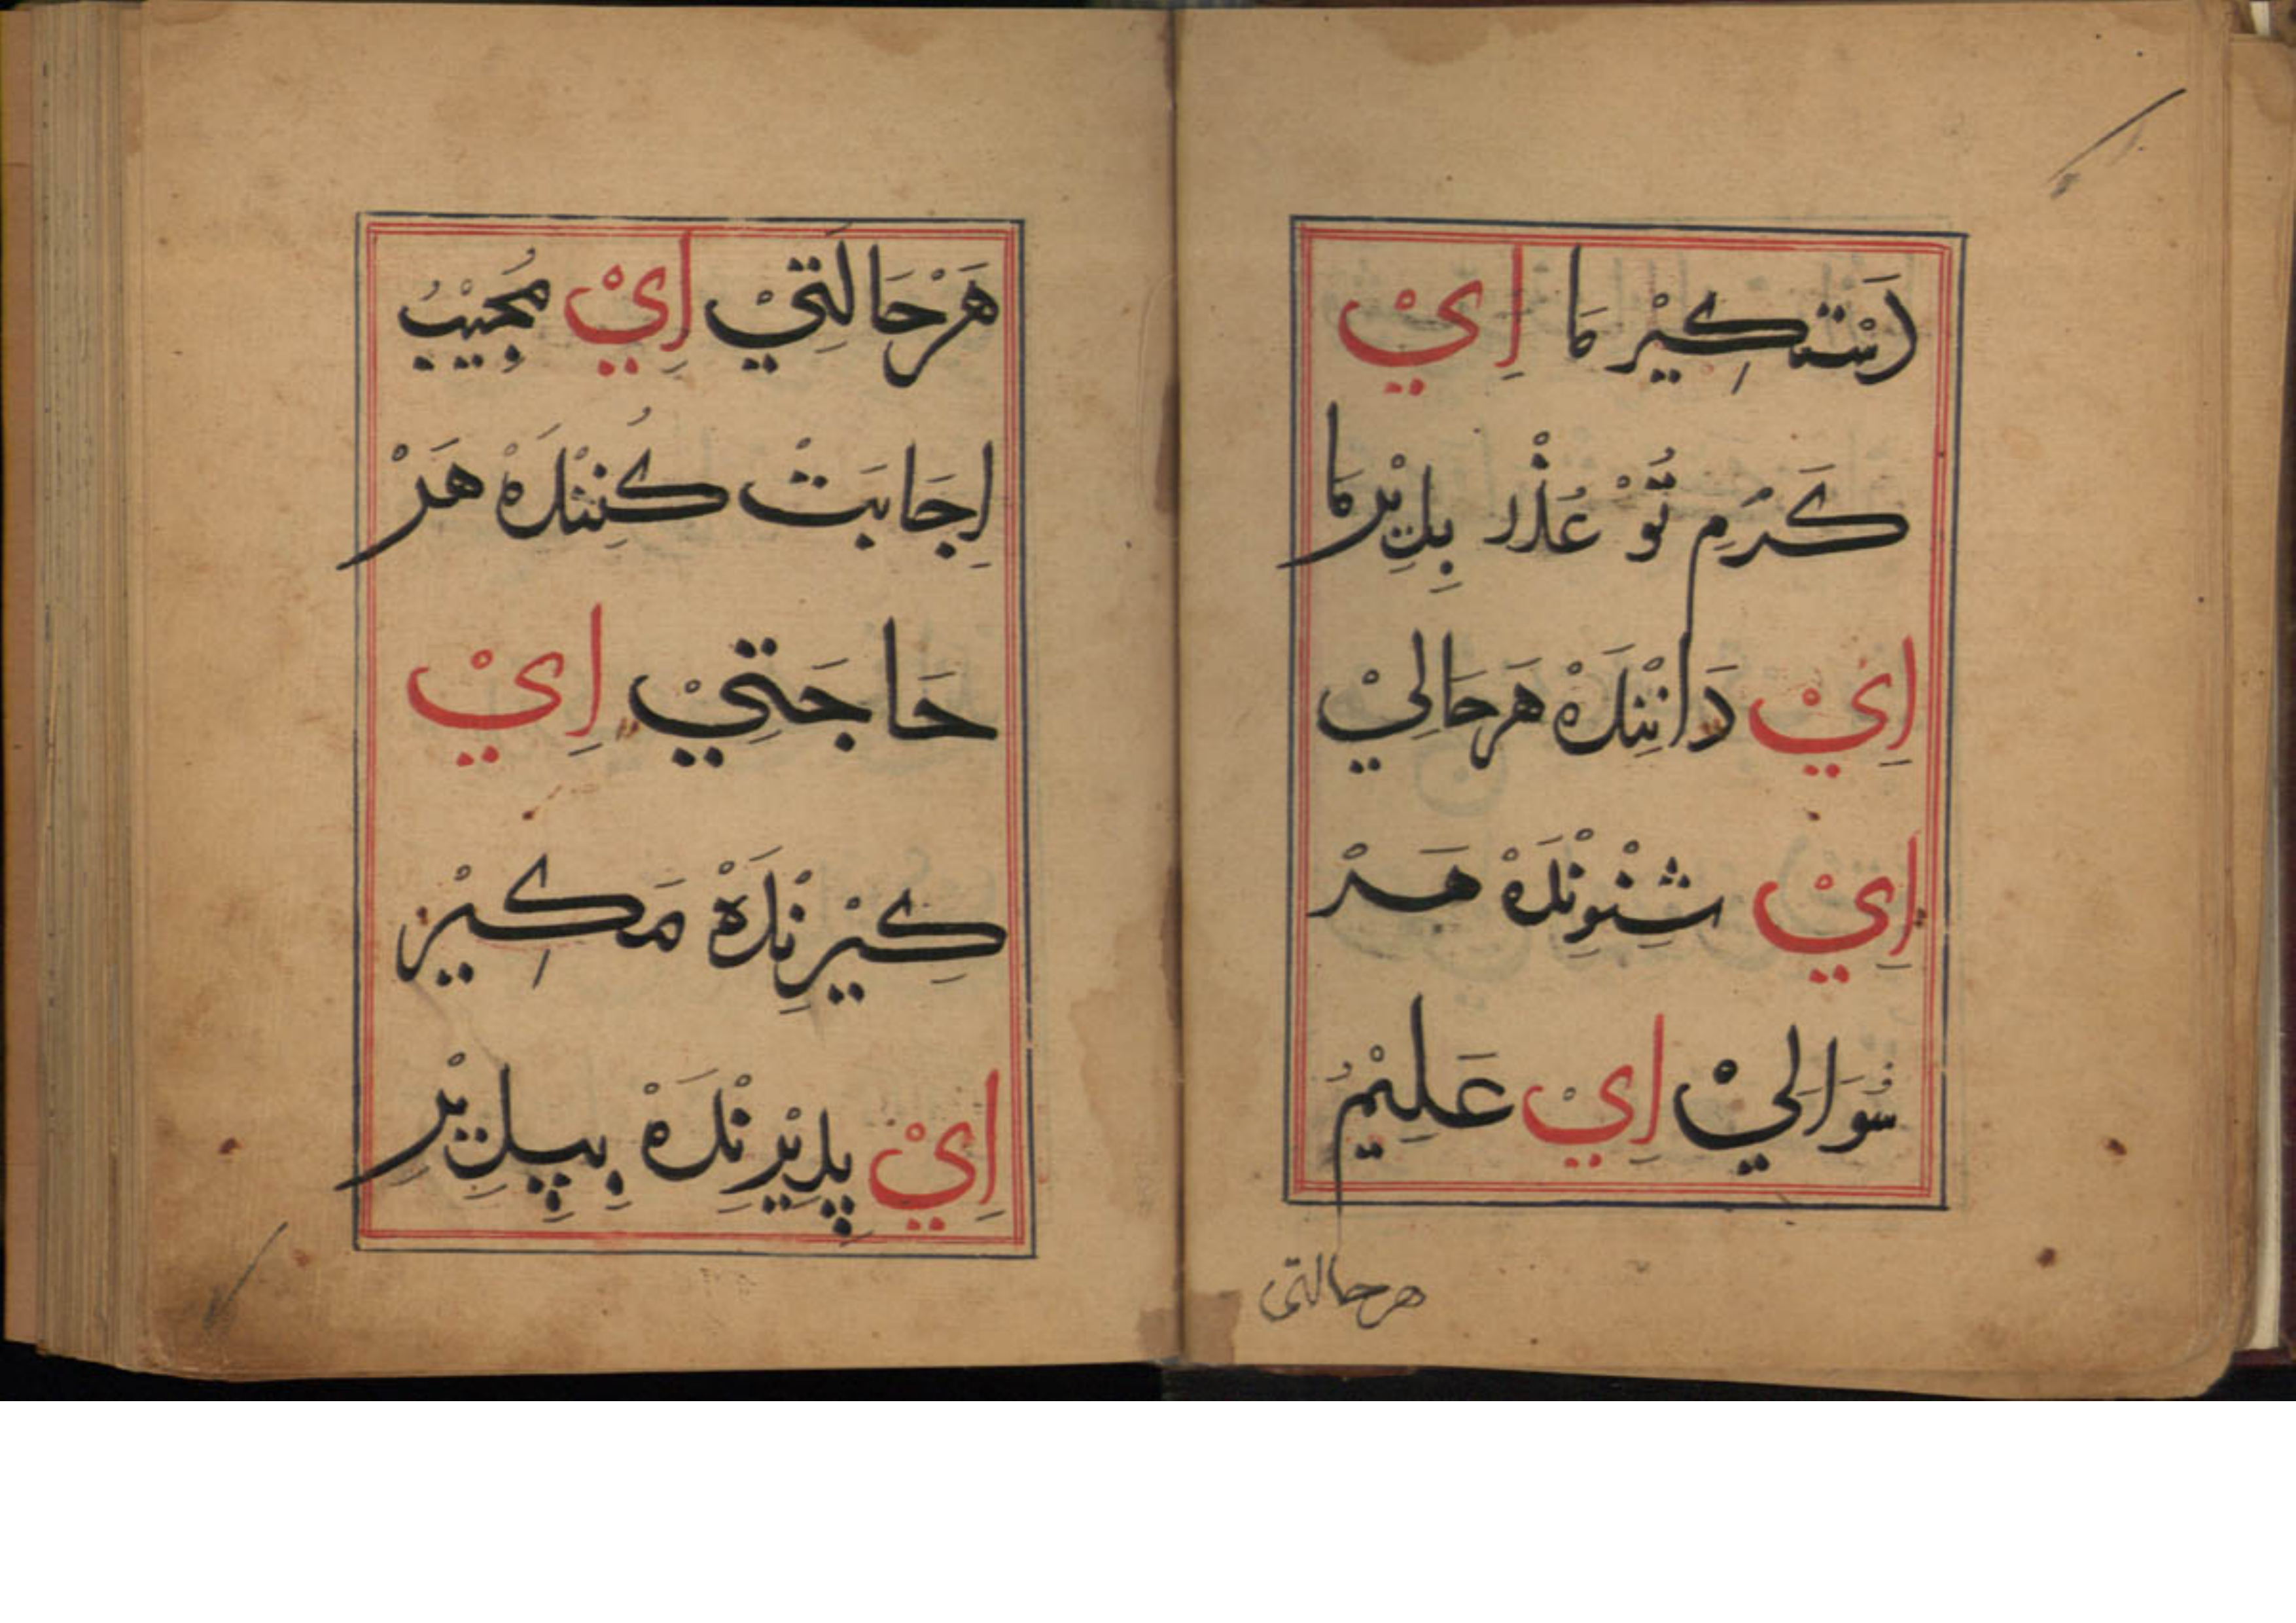 دَسْتكِیْر مَا اِيْ
كَرَمِ تُوْ عُذْر بِلِیْرمَا
اِيْ دَانِنْدَهْ هَرحَالِيْ
اِيْ شِنْوِنْدَهْ هَرْ
سُوَالِيْ اِيْ عَلِيْمُ
هرحالتى
هَرْحَالَتِيْ اِيْ مُجِيْبُ
اِجَابَتْ كُنِنْدَهْ هَرْ
حَاجَتِيْ اِيْ
كِیْرنِدَهْ مَكِیْر
اِيْ پِذِیْرنْدَهْ بِپِذِیْر